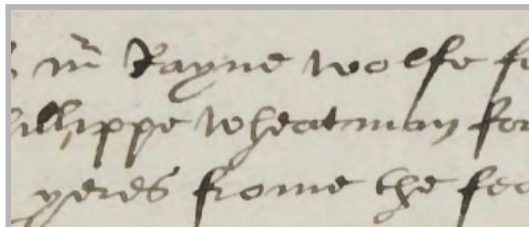 mr Rayne wolfe fo
illippe wheatman for
yeres frome the fea